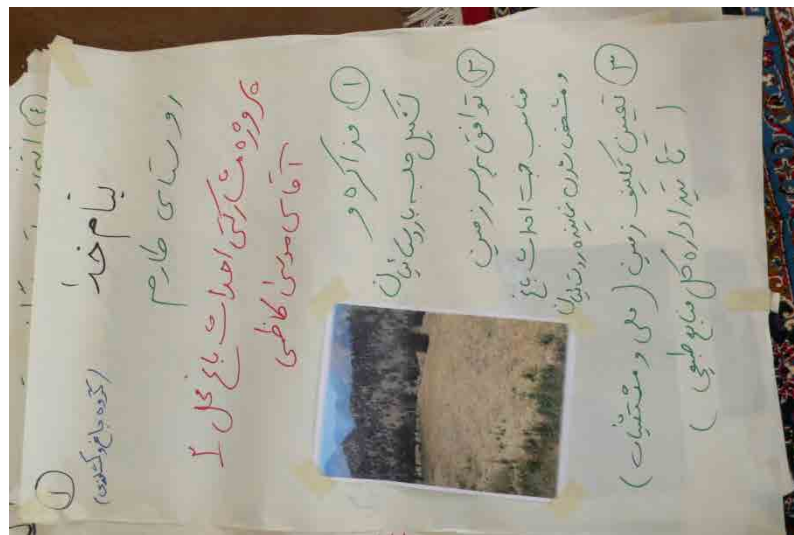 ①
بنام خدا
(گروه باغ و کشاورزی)
روستای طارم
پروژه مشارکتی احداث باغ نخل ۲
آقای موسی کاظمی
① مذاکره و
تشکیل جلسه با روستائیان
② توافق بر سر زمین
مناسب جهت احداث باغ
و مشخص شدن نماینده روستائیان
③ تعیین تکلیف زمین (ملی و مستثنیات)
(تأیید اداره کل منابع طبیعی)
④